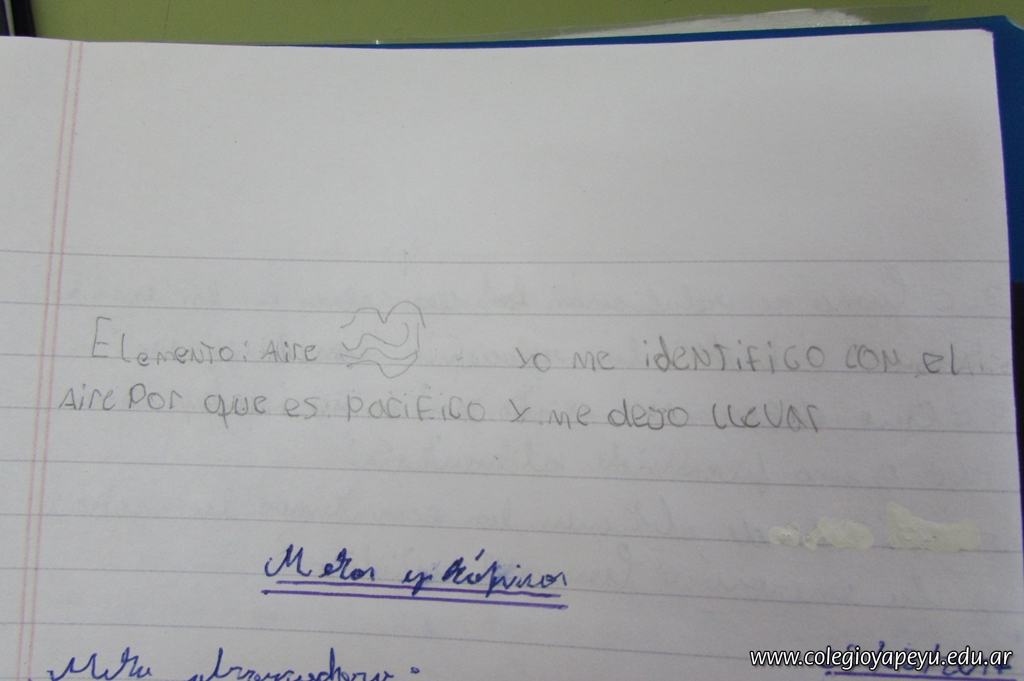 Elemento: Aire yo me identifico con el
Aire Por que es pacifico y me dejo llevar
Metas y
Meta
www.colegioyapeyu.edu.ar